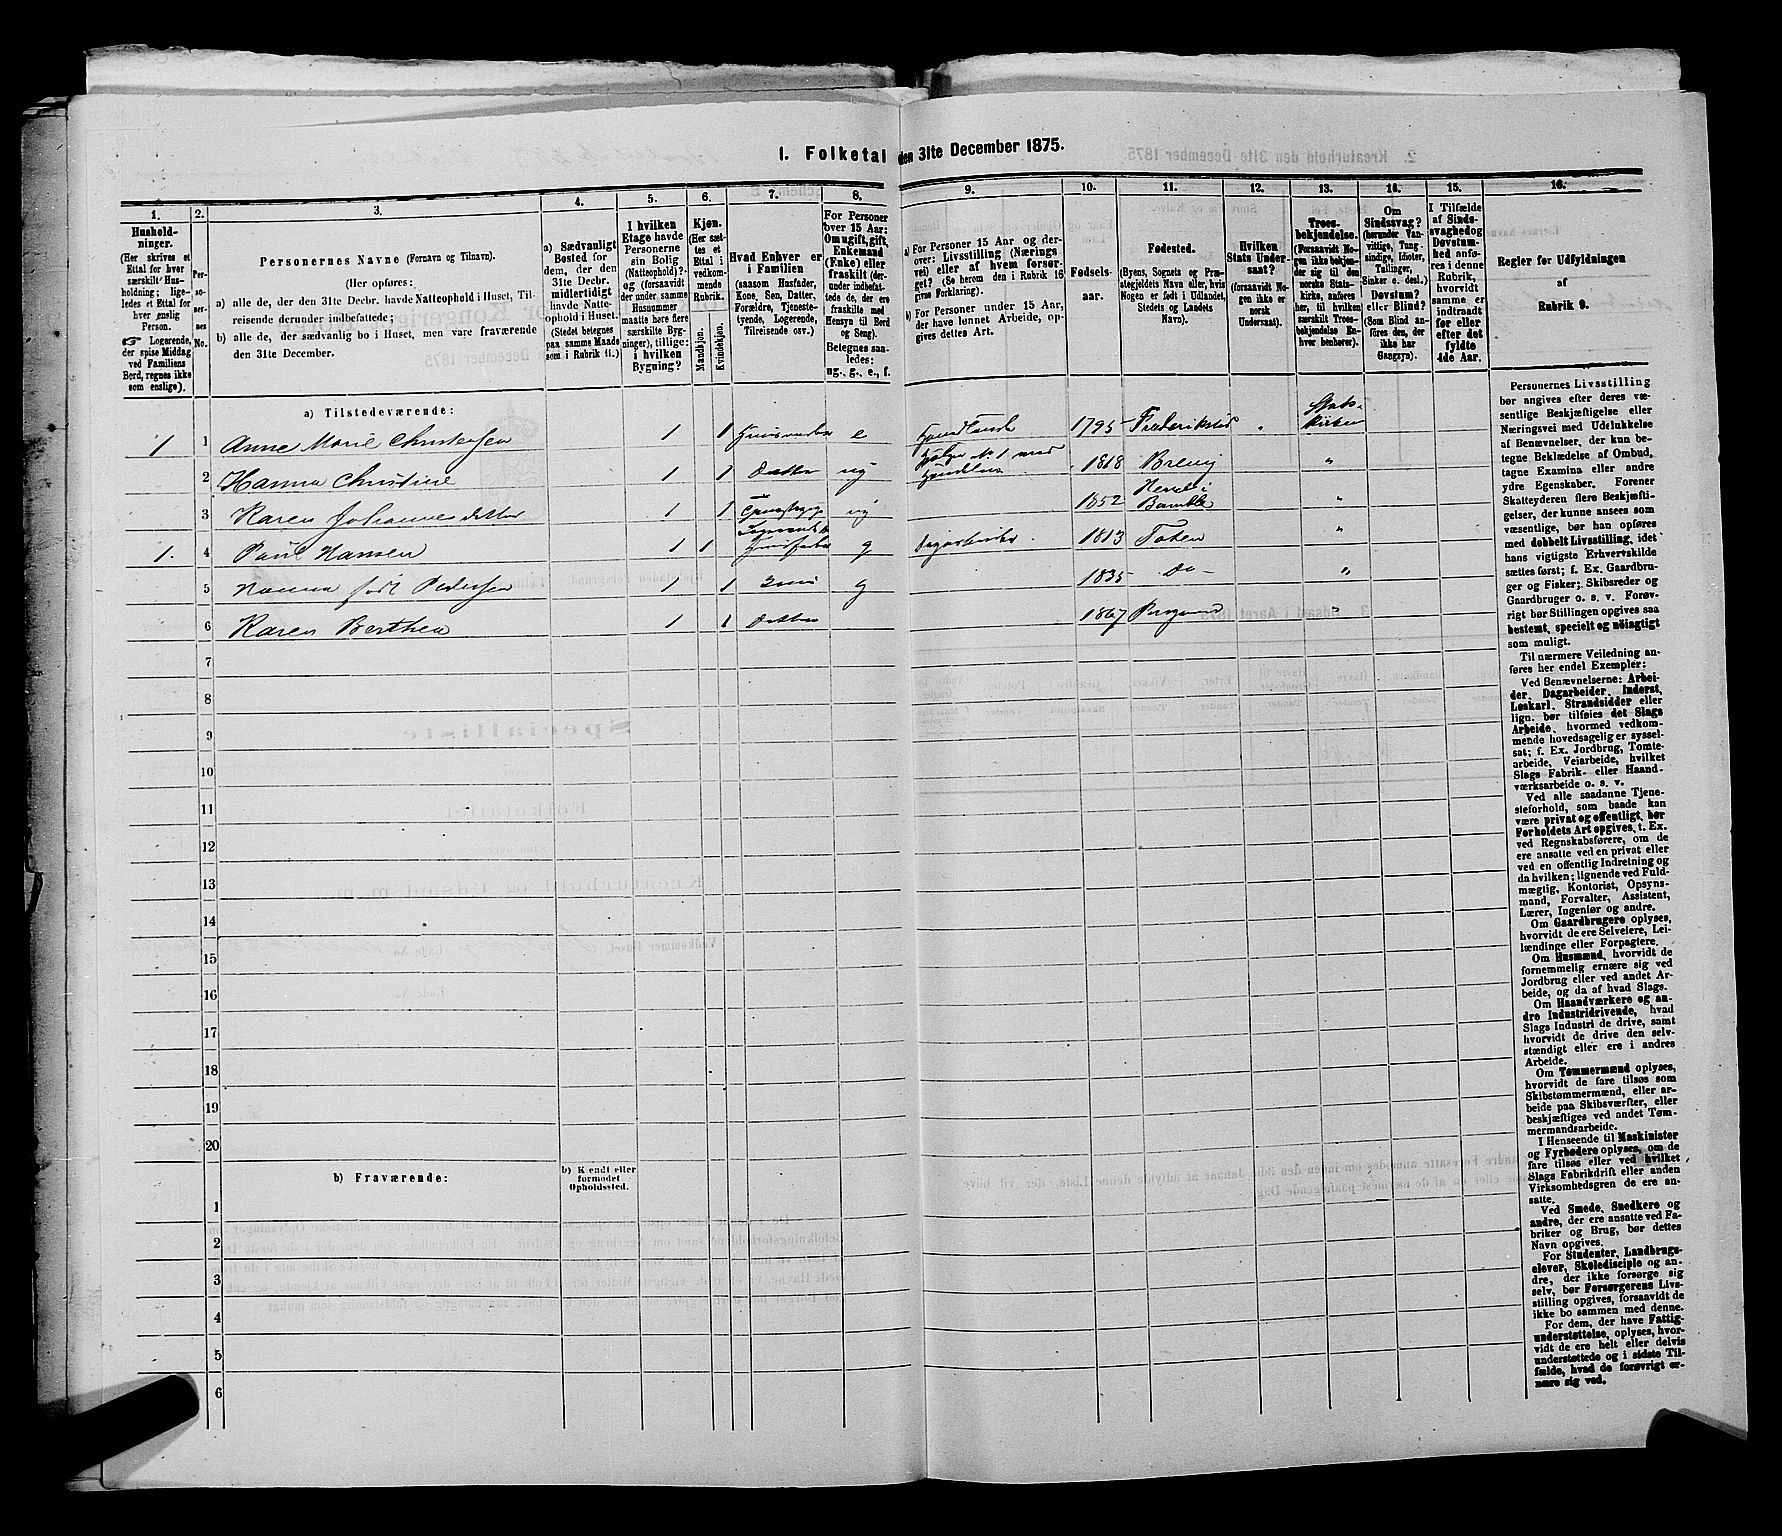 1. Folketal den 31te December 1875.
1.
Hushold-
ninger.
(Her skrives et
Ettal for hver
særskilt Hus-
holdning; lige-
ledes et Ettal for
hver enslig
Person.
Logerende,
der spise Middag
ved Familiens
Bord, regnes ikke
som enslige).
2.
Per-
so-
ner-
nes
No.
3.
Personernes Navne (Fornavn og Tilnavn).
(Her opføres:
a) alle de, der den 31te Decbr. havde Natteophold i Huset, Til-
reisende derunder indbefattede;
b) alle de, der sædvanlig bo i Huset, men vare fraværende
den 31te December.
4.
a) Sædvanligt
Bosted for
dem, der den
31te Decbr.
midlertidigt
havde Natte-
ophold i Huset.
(Stedet betegnes
paa samme Maade
som i Rubrik 11.)
5.
I hvilken
Etage havde
Personerne
sin Bolig
(Natteophold)?
(forsaavidt
der under samme
Husnummer
maatte høre flere
særskilte Byg-
ninger), tillige:
i hvilken
Bygning?
6.
Kjøn.
(Her sæt-
tes et
Ettal i
vedkom-
mende
Rubrik.
Mandkjøn.
Kvindekjøn.
7.
Hvad Enhver er
i Familien
(saasom Husfader,
Kone, Søn, Datter,
Forældre, Tjeneste-
tyende, Logerende,
Tilreisende osv.)
8.
For Personer
over 15 Aar:
Om ugift, gift,
Enkemand
(Enke) eller
fraskilt (der-
under indbefat-
tede de, der ere
fraskilte med
Hensyn til Bord
og Seng).
Betegnes saa-
ledes:
ug., g., e., f.
9.
a) For Personer 15 Aar og der-
over: Livsstilling (Nærings
vei) eller af hvem forsør-
get? (Se herom den i Rubrik 16
givne Forklaring).
b) For Personer under 15 Aar,
der have lønnet Arbeide, op-
gives dettes Art.
10.
Fødsels-
aar.
11.
Fødested.
(Byens, Sognets og Præ-
stegjeldets Navn eller, hvis
Nogen er født i Udlandet,
Stedets og Landets
Navn).
12.
Hvilken
Stats Under-
saat?
(forsaavidt No-
gen ikke er
norsk
Undersaat).
13.
Troes-
bekjendelse.
(Forsaavidt No-
gen ikke beken-
der sig til den
norske Stats-
kirke, anføres
her, til hvilken
særskilt Troes-
bekjendelse En-
hver henhører).
14.
Om
Sindssvag?
(herunder Van-
vittige, Tung-
sindige, Idioter,
Tullinger,
Sinker o. desl.)
Døvstum?
eller Blind?
(Som Blind an-
føres den, der
ikke har
Gangsyn).
15.
I Tilfælde
af Sinds-
svaghed og
Døvstum-
hed anfø-
res i denne
Rubrik,
hvorvidt
samme er
indtraadt
før eller
efter det
fyldte
4de Aar.
16.
Regler for Udfyldningen
af
Rubrik 9.
a) Tilstedeværende:
1 1 Anne Marie Christensen 1 1 e 1795 Frederikstad Stats-
kirken
2 Hanna Christine 1 1 Datter ug 1818 Brevig "
3 Karen Johannesdatter 1 1 ug 1852 Bamble "
1. 4 Paul Hansen 1 1 g Dagarbeider 1813 Toten "
5 Hanna født Pedersen 1 1 Kone g 1835 Do "
6 Karen Berthea 1 1 Datter 1867 "
7
8
9
10
11
12
13
14
15
16
17
18
19
20
b) Fraværende:
b) Kjendt eller
formodet
Opholdssted.
1
2
3
4
5
6
Personernes Livsstilling
bør angives efter deres væ-
sentlige Beskjæftigelse eller
Næringsvei med Udelukkelse
af Benævnelser, der kun be-
tegne Beklædelse af Ombud,
tagne Examina eller andre
ydre Egenskaber. Forener
Skatteyderen flere Beskjæfti-
gelser, der kunne ansees som
væsentlige, bør han opføres
med dobbelt Livsstilling, idet
hans vigtigste Erhvervskilde
sættes først; f. Ex. Gaardbru-
ger og Fisker; Skibsreder og
Gaardbruger o. s. v. Forøv-
rigt bør Stillingen opgives saa
bestemt, specielt og nøiagtigt
som muligt.
Til nærmere Veiledning an-
føres her endel Exempler:
Ved Benævnelserne: Arbei-
der, Dagarbeider, Inderst,
Løskarl, Strandsidder eller
lign. bør tilføies det Slags
Arbeide, hvormed vedkom-
mende hovedsagelig er syssel-
sat; f. Ex. Jordbrug, Tomte-
arbeide, Veiarbeide, hvilket
Slags Fabrik- eller Haand-
værksarbeide o. s. v.
Ved alle saadanne Tjene-
steforhold, som baade kan
være privat og offentligt, bør
Forholdets Art opgives, t. Ex.
ved Regnskabsførere, om de
ere ansatte ved en privat eller
ved en offentlig Indretning og
da hvilken; lignende ved Fuld-
mægtig, Kontorist, Opsyns-
mand, Forvalter, Assistent,
Lærer, Ingeniør og andre.
Om Gaardbrugere oplyses,
hvorvidt de ere Selveiere, Lei-
lændinge eller Forpagtere.
Om Husmænd, hvorvidt de
fornemmelig ernære sig ved
Jordbrug eller ved andet Ar-
beide, og da af hvad Slags.
Om Haandværkere og an-
dre Industridrivende, hvad
Slags Industri de drive, samt
hvorvidt de drive den selv-
stændigt eller ere i andres
Arbeide.
Om Tømmermænd oplyses,
hvorvidt de fare tilsøs som
Skibstømmermænd, eller ar-
beide paa Skibsværfter, eller
beskjæftiges ved andet Tøm-
mermandsarbeide.
I Henseende til Maskinister
og Fyrbødere oplyses, om de
fare tilsøs eller ved hvilket
Slags Fabrikdrift eller anden
Virksomhedsgren de ere an-
satte.
Ved Smede, Snedkere og
andre, der ere ansatte ved Fa-
briker og Brug, bør dettes
Navn opgives.
For Studenter, Landbrugs-
elever, Skoledisciple og an-
dre, der ikke forsørge sig
selv, bør Forsørgerens Livs-
stilling opgives, forsaavidt de
ikke bo sammen med denne.
For dem, der have Fattig-
understøttelse, oplyses, hvor-
vidt de ere helt eller delvis
understøttede og i sidste Til-
fælde, hvad de forøvrigt er-
nære sig ved.